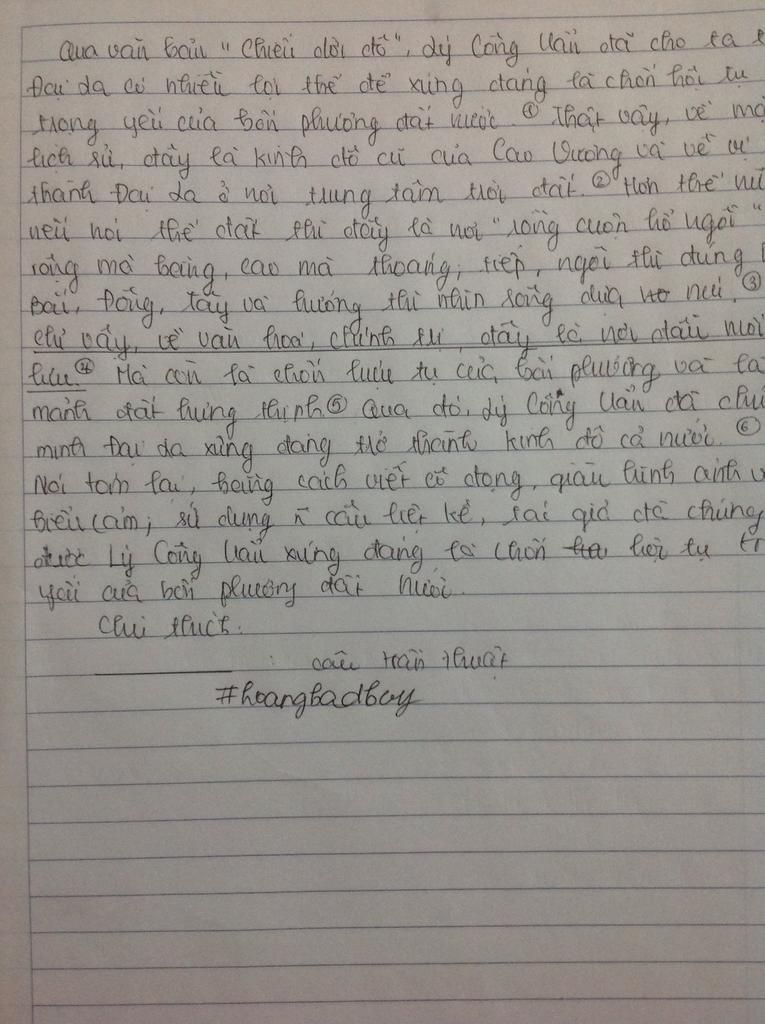 Qua văn bản "Chiếu dời đô", Lý Công Uẩn đã cho ta
Đại La có nhiều lợi thế để xứng đáng là chốn hội tụ
trọng yếu của bốn phương đất nước. ① Thật vậy, về
lịch sử, đây là kinh đô cũ của Cao Vương và về vị
thành Đại La ở nơi trung tâm trời đất. ② Hơn thế nữ
nếu nói thế đất thì đây là nơi "rồng cuộn hổ ngồi"
rộng mà bằng, cao mà thoáng; tiếp, ngôi thì đúng
Bắc, Đông, Tây và hướng thì nhìn sông dựa núi. ③
chư vậy, về văn hoá, chính trị, đây là nơi đầu mối
lưu ④ Mà còn là chốn tụ của bốn phương và là
mảnh đất hưng thịnh ⑤ Qua đó, Lý Công Uẩn đã chứ
minh Đại La xứng đáng trở thành kinh đô cả nước. ⑥
Nói tóm lại, bằng cách viết cô đọng, giàu hình ảnh v
biểu cảm; sử dụng câu liệt kê, tác giả đã chứng
được Lý Công Uẩn xứng đáng là chốn hội tụ tr
yếu của bốn phương đất nước.
Chú thích:
: câu trần thuật
#hoangbadboy